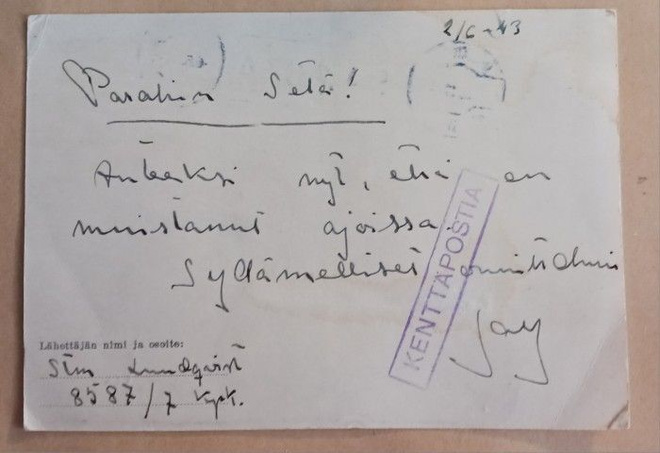 2/6-43
Parahin Setä!
Anteeksi nyt, että en
muistanut ajoissa.
Sydämelliset onnittelumi
KENTTÄPOSTIA
Jay
Lähettäjän nimi ja osoite:
Lundqvist
8587/7 Kpk.